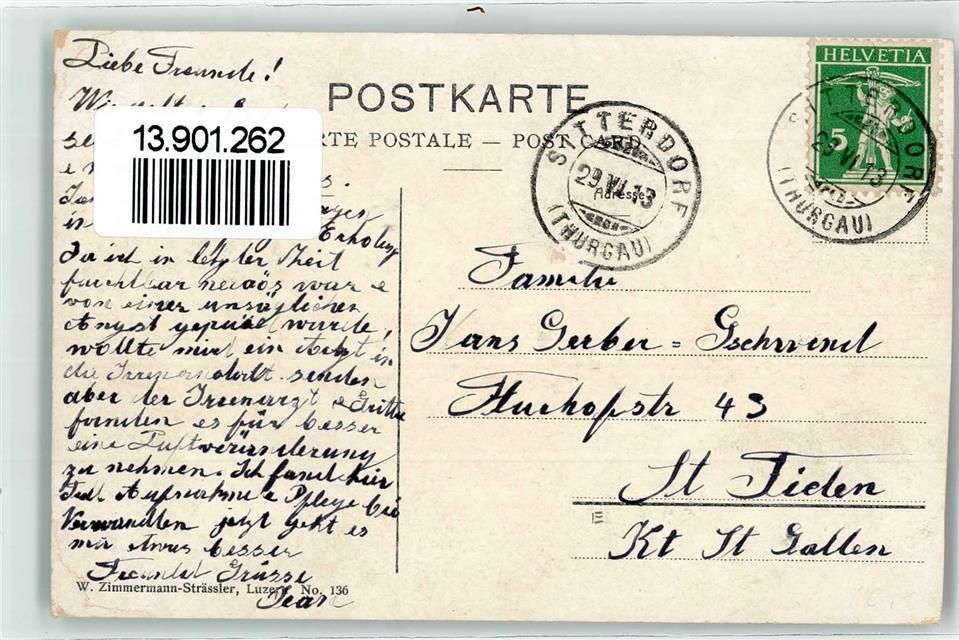 Liebe Freunde!
POSTKARTE
CARTE POSTALE — POST CARD
13.901.262
Adresse
HELVETIA
5
SITTERDORF
29.VI.13
(THURGAU)
SITTERDORF
29.VI.13
(THURGAU)
Erholung
Da ich in letzter Zeit
furchtbar nervös war &
von einer unsäglichen
Angst gequält wurde,
wollte mich ein Arzt in
die Irrenanstalt senden
aber der Irrenarzt &
fanden es für besser
eine Luftveränderung
zu nehmen. Ich fand hier
Aufnahme & Pflege bei
Verwandten jetzt geht es
mir etwas besser
Freundl Grüsse
Jean
Familie
Hans Gerber = Gschwend
Fluhofstr 43
St Fiden
Kt St Gallen
W. Zimmermann-Strässler, Luzern No. 136